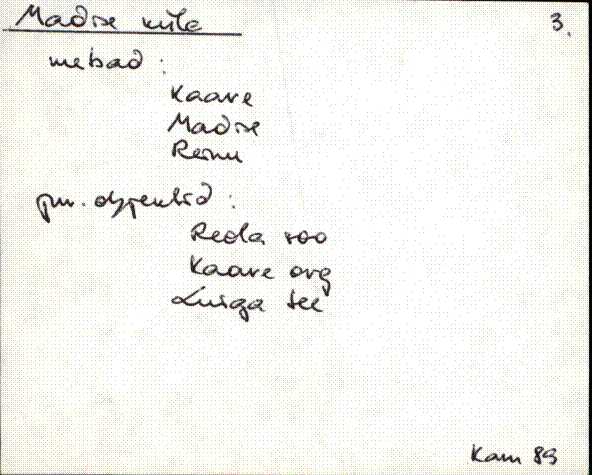 Madise küla
3.
mebad :
Kaave
Madise
Reinu
pm. objektid :
Reola soo
Kaave org
Luiga tee
Kam 89